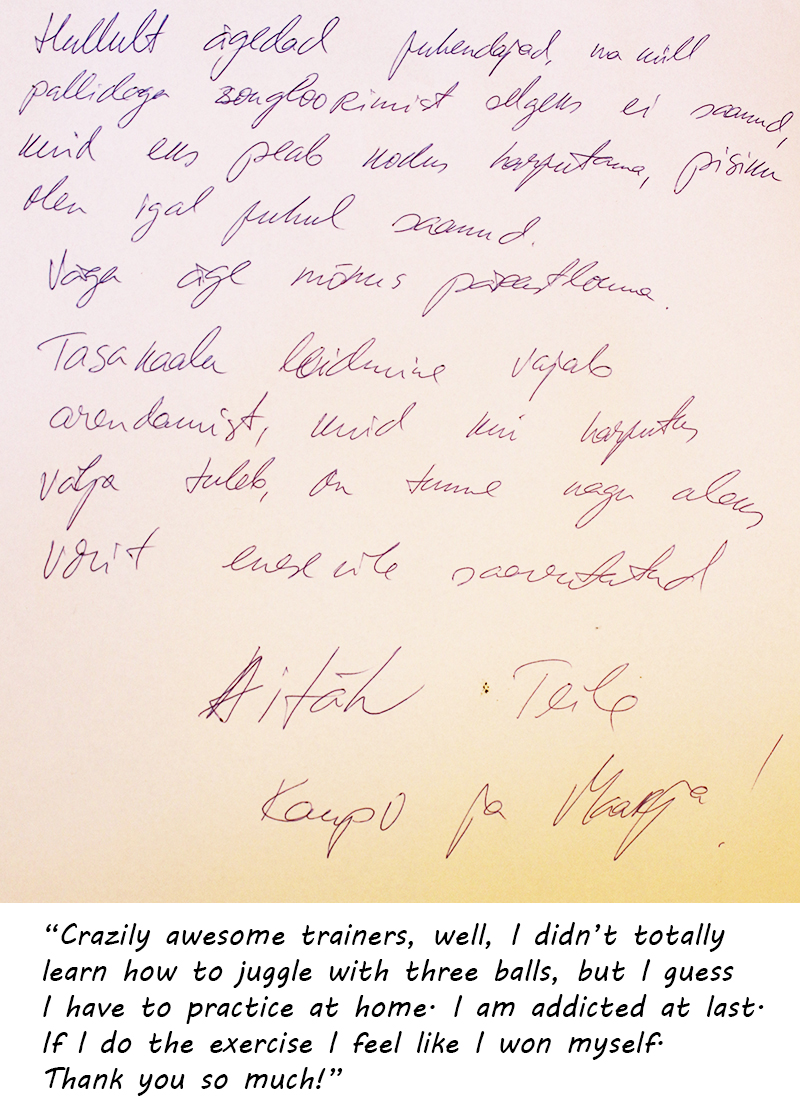 Hullult ägedad juhendajad, na küll
pallidega zongloorimist selgeks ei saanud,
kuid eks peab kodus harjutama, pisiku
olen igal juhul saanud.
Väga äge mõnus pärastlõuna.
Tasakaalu leidmine vajab
arendamist, kuid kui harjutus
välja tuleb, on tunne nagu oleks
võit enese üle saavutatud
Aitäh Teile
Kaupo ja Maarja!
“Crazily awesome trainers, well, I didn’t totally
learn how to juggle with three balls, but I guess
I have to practice at home. I am addicted at last.
If I do the exercise I feel like I won myself.
Thank you so much!”